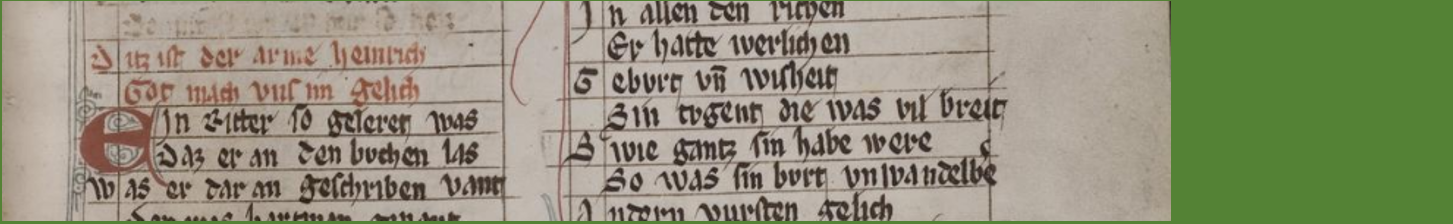 Ditz ist der arme heinrich
Got mach vns im gelich
Ein Ritter so geleret was
Daz er an den buchen las
Was er dar an geschriben vant
Der was hartman genant
In allen den richen
Er hatte werlichen
Geburt vn̄ wisheit
Sin tvgent die was vil breit
Swie gantz sin habe were
So was sin burt vnwandelbe
Andern vursten gelich